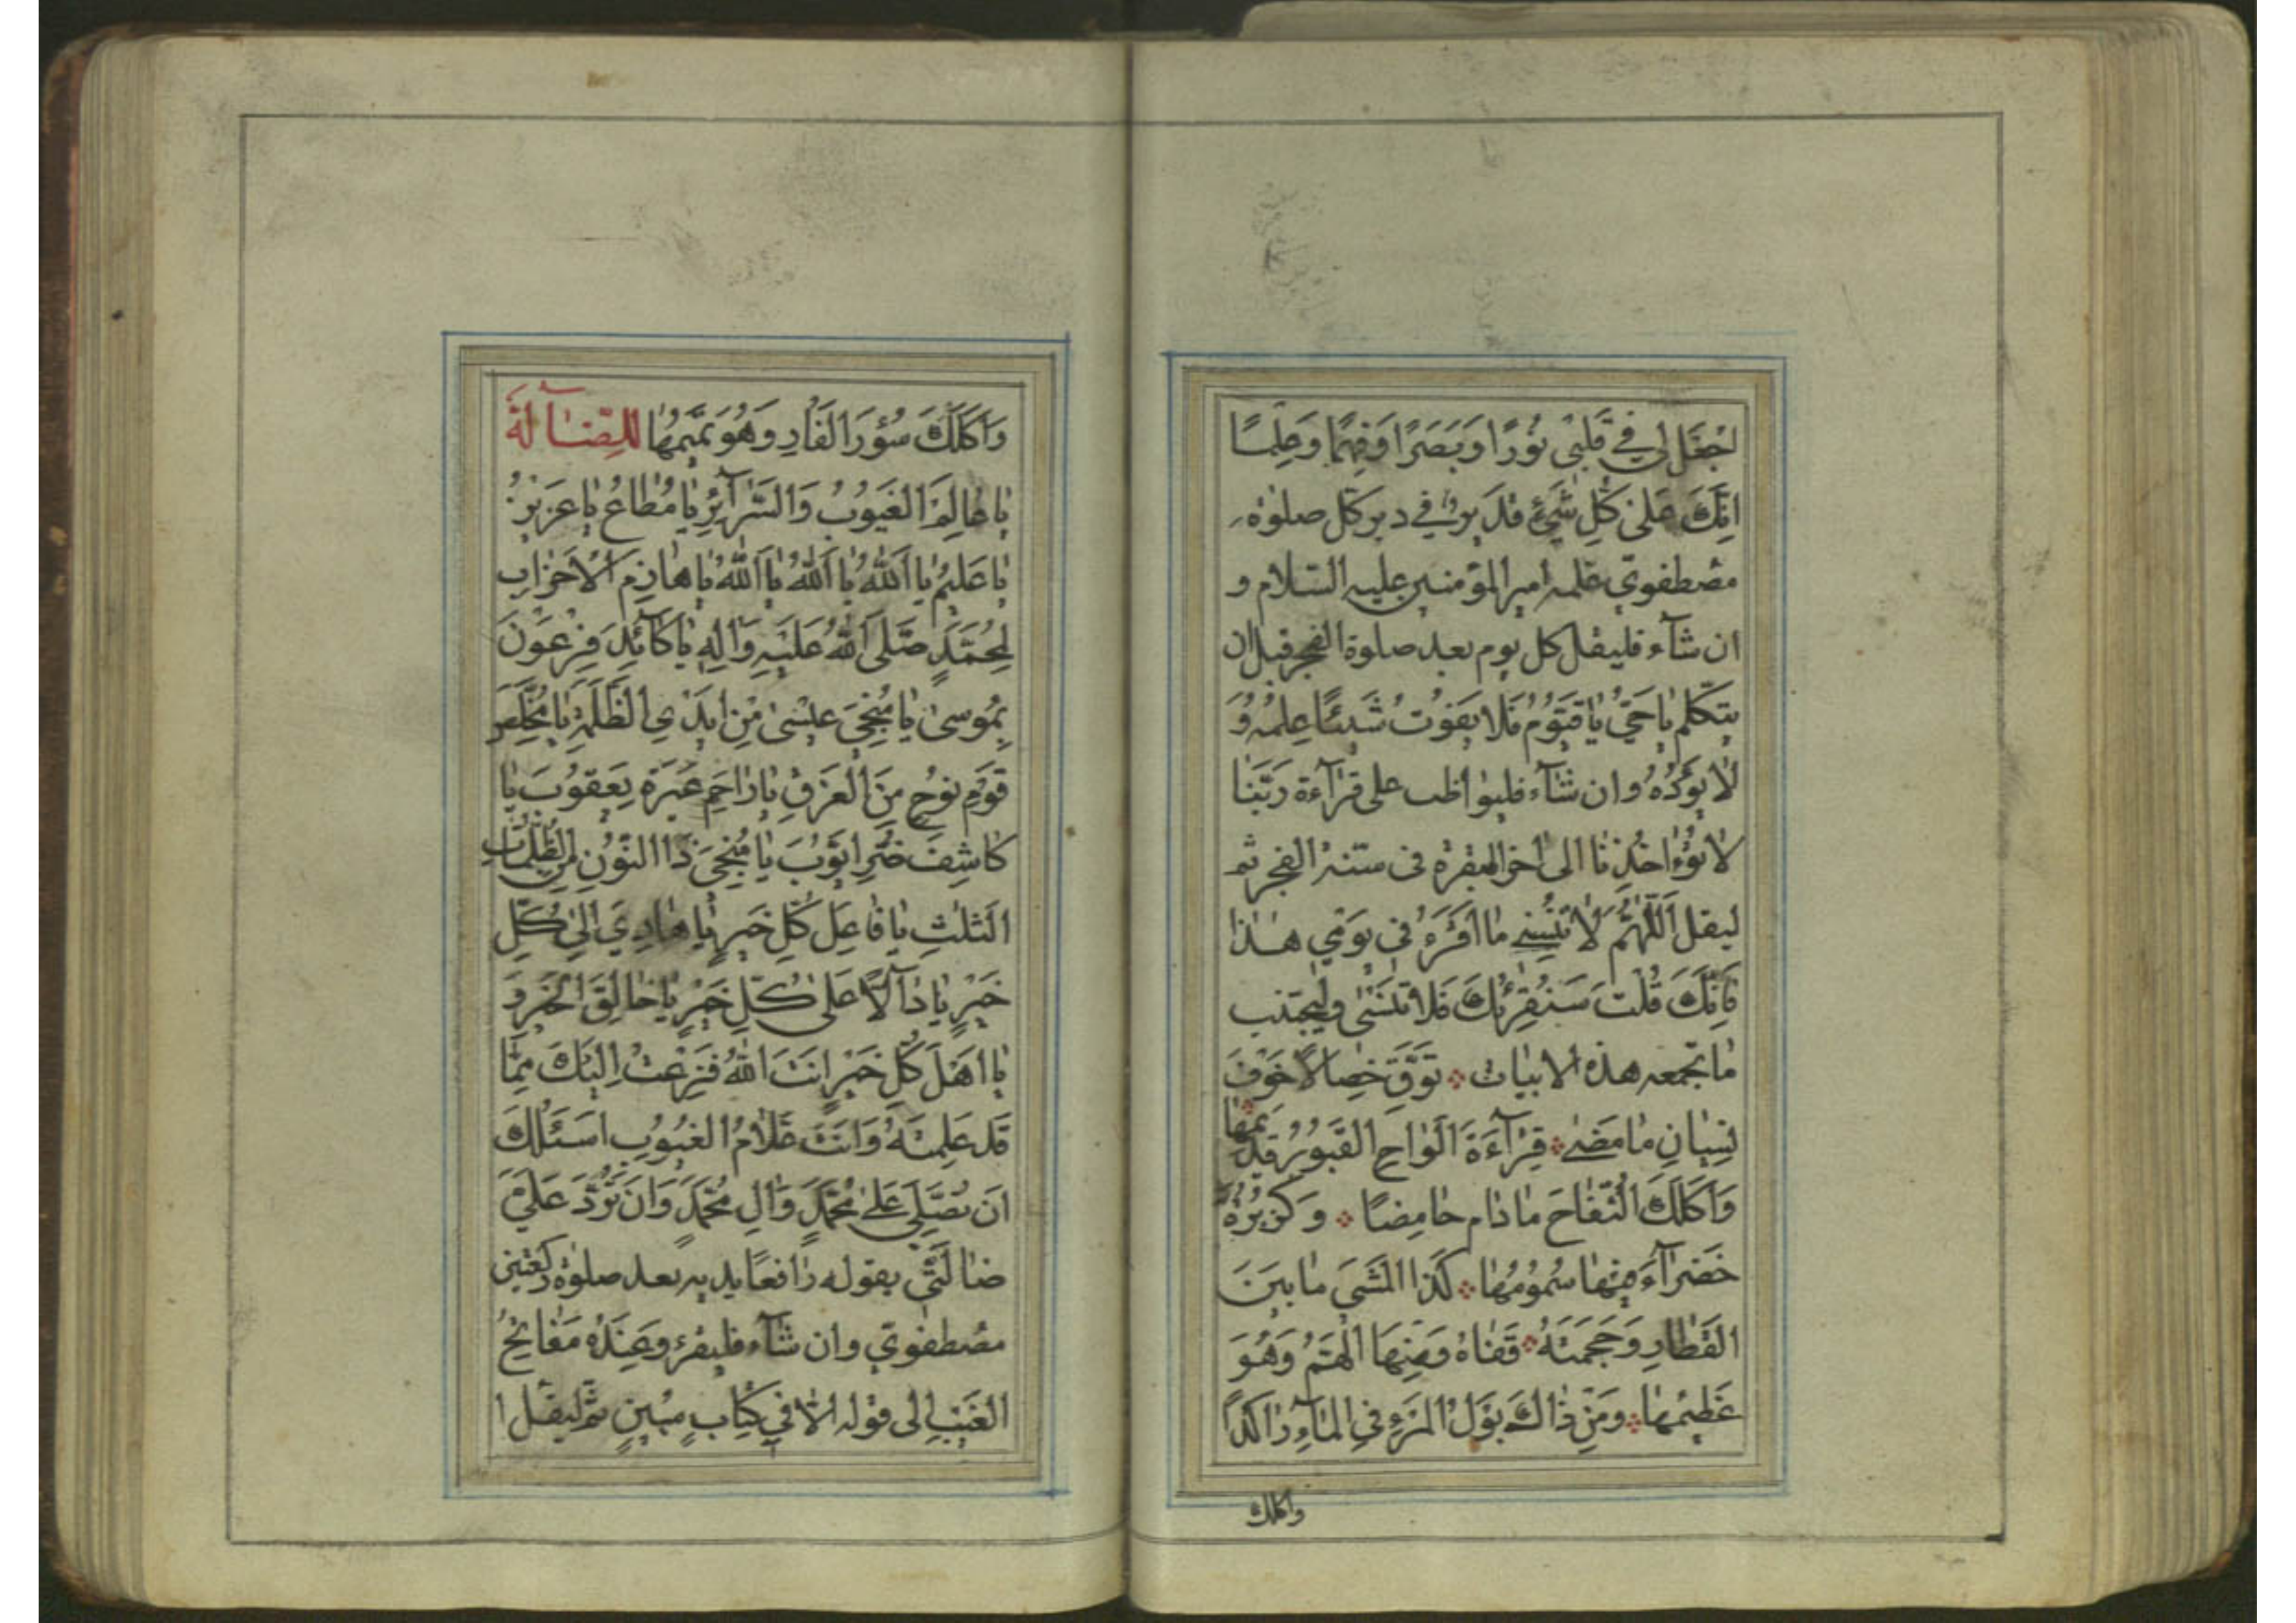 اجْعَلْ لِي فِي قَلْبِي نُورًا وَبَصَرًا وَفَهْمًا وَعِلْمًا
اِنَّكَ عَلىٰ كُلِّ شَيْءٍ قَدِيرٌ في دبر كل صلوٰة
مصطفوي علمه امير المؤمنين عليه السّلام و
ان شآء فليقل كل يوم بعد صلوة الفجر قبل ان
يتكلم يٰا حَيُّ يٰا قَيُّومُ فَلا يَفُوتُ شَيْئًا عِلْمُهُ وَ
لٰا يَؤُدُهُ وان شآء فليواظب على قرآءة رَبَّنٰا
لٰا تُؤٰاخِذْنٰا الى اخر البقرة فى سنة الفجر ثم
ليقل اَللّٰهُمَّ لٰا تُنْسِنِي مٰا اَقْرَءُ فِي يَوْمِي هٰذٰا
فَاِنَّكَ قُلْتَ سَنُقْرِئُكَ فَلٰا تَنْسٰى وليجتنب
مٰا تجمعه هذه الابيات تَوَقَّ خِصٰالًا خَوْفَ
نِسْيٰانِ مٰا مَضىٰ قِرٰآءَةَ اَلْوٰاحِ الْقُبُورِ تُدِيمُهٰا
وَاَكْلَكَ التُّفّٰاحَ مٰا دٰام حٰامِضًا وَكُزْبُرَةً
خَضْرٰآءَ فِيهٰا سُمُومُهٰا كَذَا الْمَشْيَ مٰا بَيْنَ
القِطٰارِ وَحَجْمَةُ قَفٰاهُ وَمِنْهَا الْهَمُّ وَهُوَ
عَظِيمُهٰا وَمِنْ ذٰاكَ بَوْلُ الْمَرْءِ فِي الْمٰآءِ رٰاكِدًا
واكلك
وَاَكْلَكَ سُؤْرَ الْفَارِ وَهُوَ تَمِيمُهٰا لِلضّٰآلَّة
يٰا عٰالِمَ الْغُيُوبِ وَالسَّرٰآئِرِ يٰا مُطٰاعُ يٰا عَزِيزُ
يٰا عَلِيمُ يٰا اَللّٰهُ يٰا اَللّٰهُ يٰا اَللّٰهُ يٰا هٰازِمَ الْاَحْزٰابِ
لِمُحَمَّدٍ صَلَّى اللّٰهُ عَلَيْهِ وَاٰلِهِ يٰا كٰآئِدَ فِرْعَوْنَ
بِمُوسىٰ يٰا مُنْجِيَ عِيسىٰ مِنْ اَيْدِي الظَّلَمَةِ يٰا مُخَلِّصَ
قَوْمِ نُوحٍ مِنَ الْغَرَقِ يٰا رٰاحِمَ عَبْرَةِ يَعْقُوبَ يٰا
كٰاشِفَ ضُرِّ اَيُّوبَ يٰا مُنْجِيَ ذَا النُّونِ مِنَ الظُّلُمٰاتِ
الثَّلٰثِ يٰا فٰاعِلَ كُلِّ خَيْرٍ يٰا هٰادِيَ اِلىٰ كُلِّ
خَيْرٍ يٰا دٰآلًّا عَلىٰ كُلِّ خَيْرٍ يٰا خٰالِقَ الْخَيْرِ وَ
يٰا اَهْلَ كُلِّ خَيْرٍ اَنْتَ اللّٰهُ فَزِعْتُ اِلَيْكَ مِمّٰا
قَدْ عَلِمْتَهُ وَاَنْتَ عَلّٰامُ الْغُيُوبِ اَسْئَلُكَ
اَنْ تُصَلِّيَ عَلىٰ مُحَمَّدٍ وَاٰلِ مُحَمَّدٍ وَاَنْ تَرُدَّ عَلَيَّ
ضٰالَّتِي يقوله رٰافعًا يديه بعد صلوٰة ركعتين
مصطفوي وان شآء فليقرء وَعِنْدَهُ مَفٰاتِحُ
الْغَيْبِ الى قوله اِلّٰا فِي كِتٰابٍ مُبِينٍ ثمّ ليقل ا